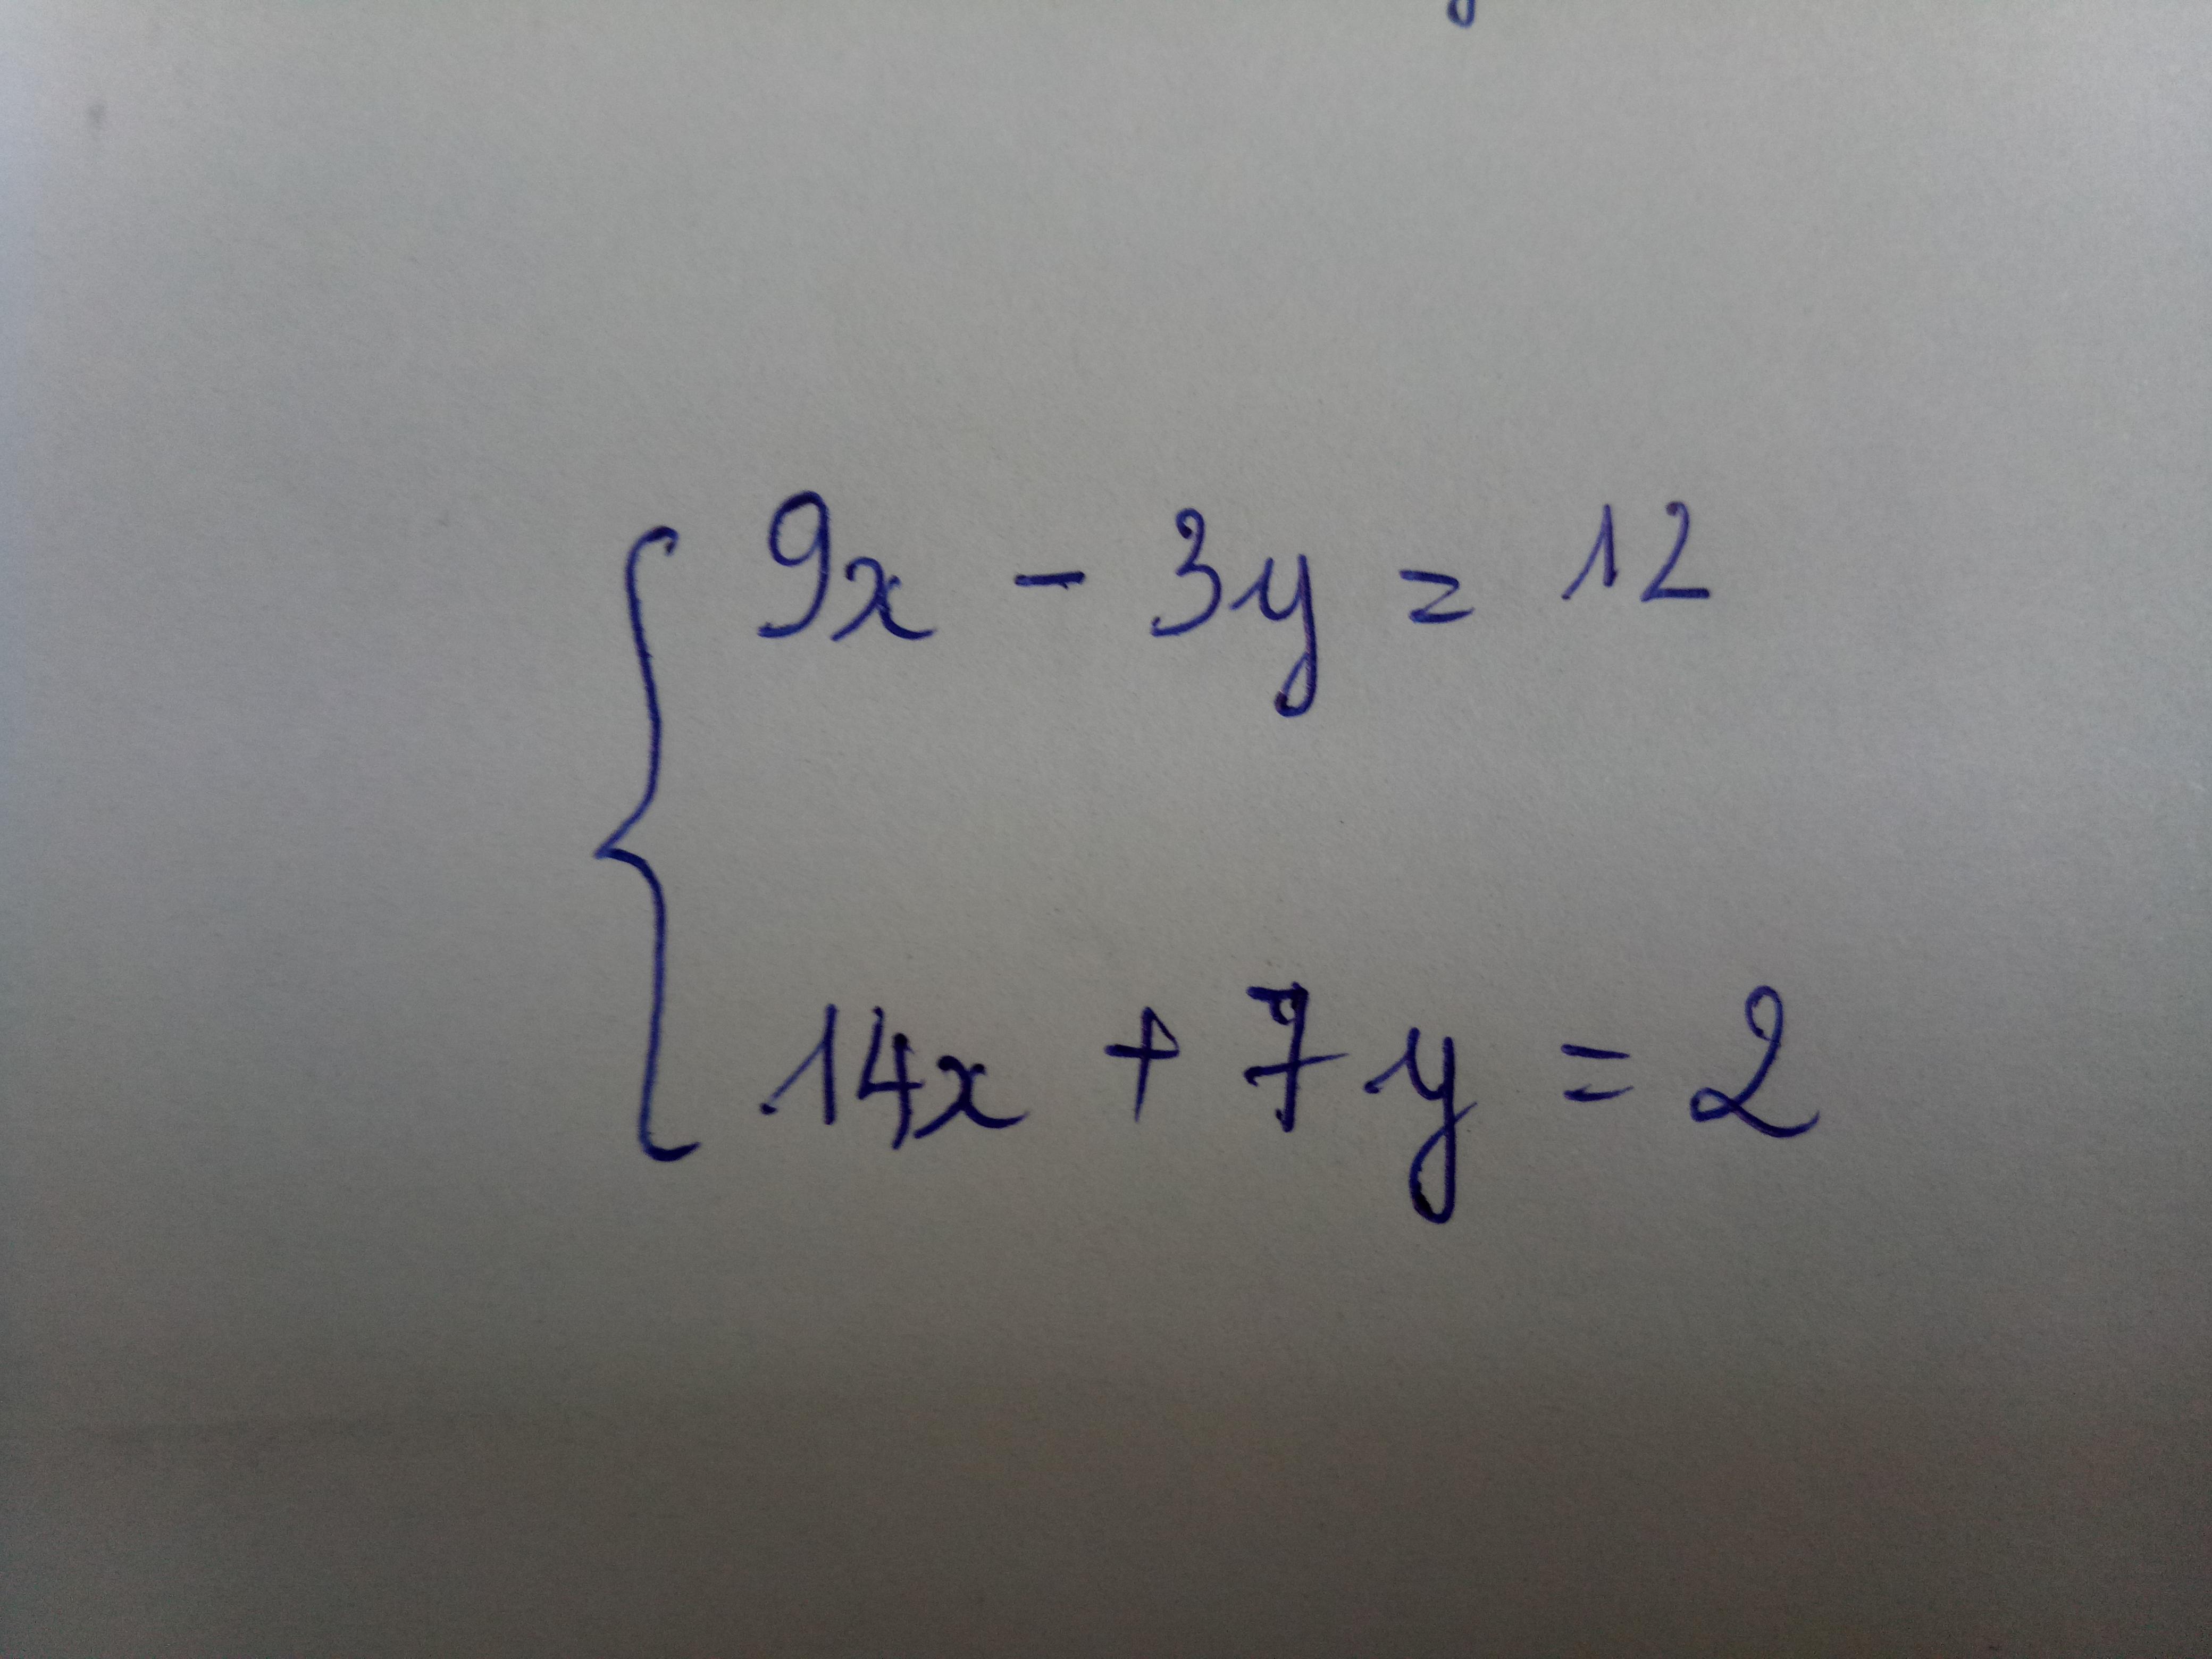 9x - 3y = 12
14x + 7y = 2